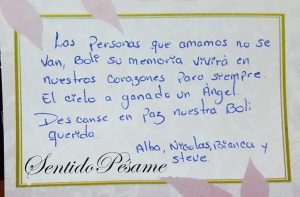 Las personas que amamos no se
van, Boli su memoria vivirá en
nuestros corazones para siempre.
El cielo a ganado un Ángel.
Descanse en paz nuestra Boli
querida.
Alba, Nicolas, Bianca y
Steve
Sentido Pésame